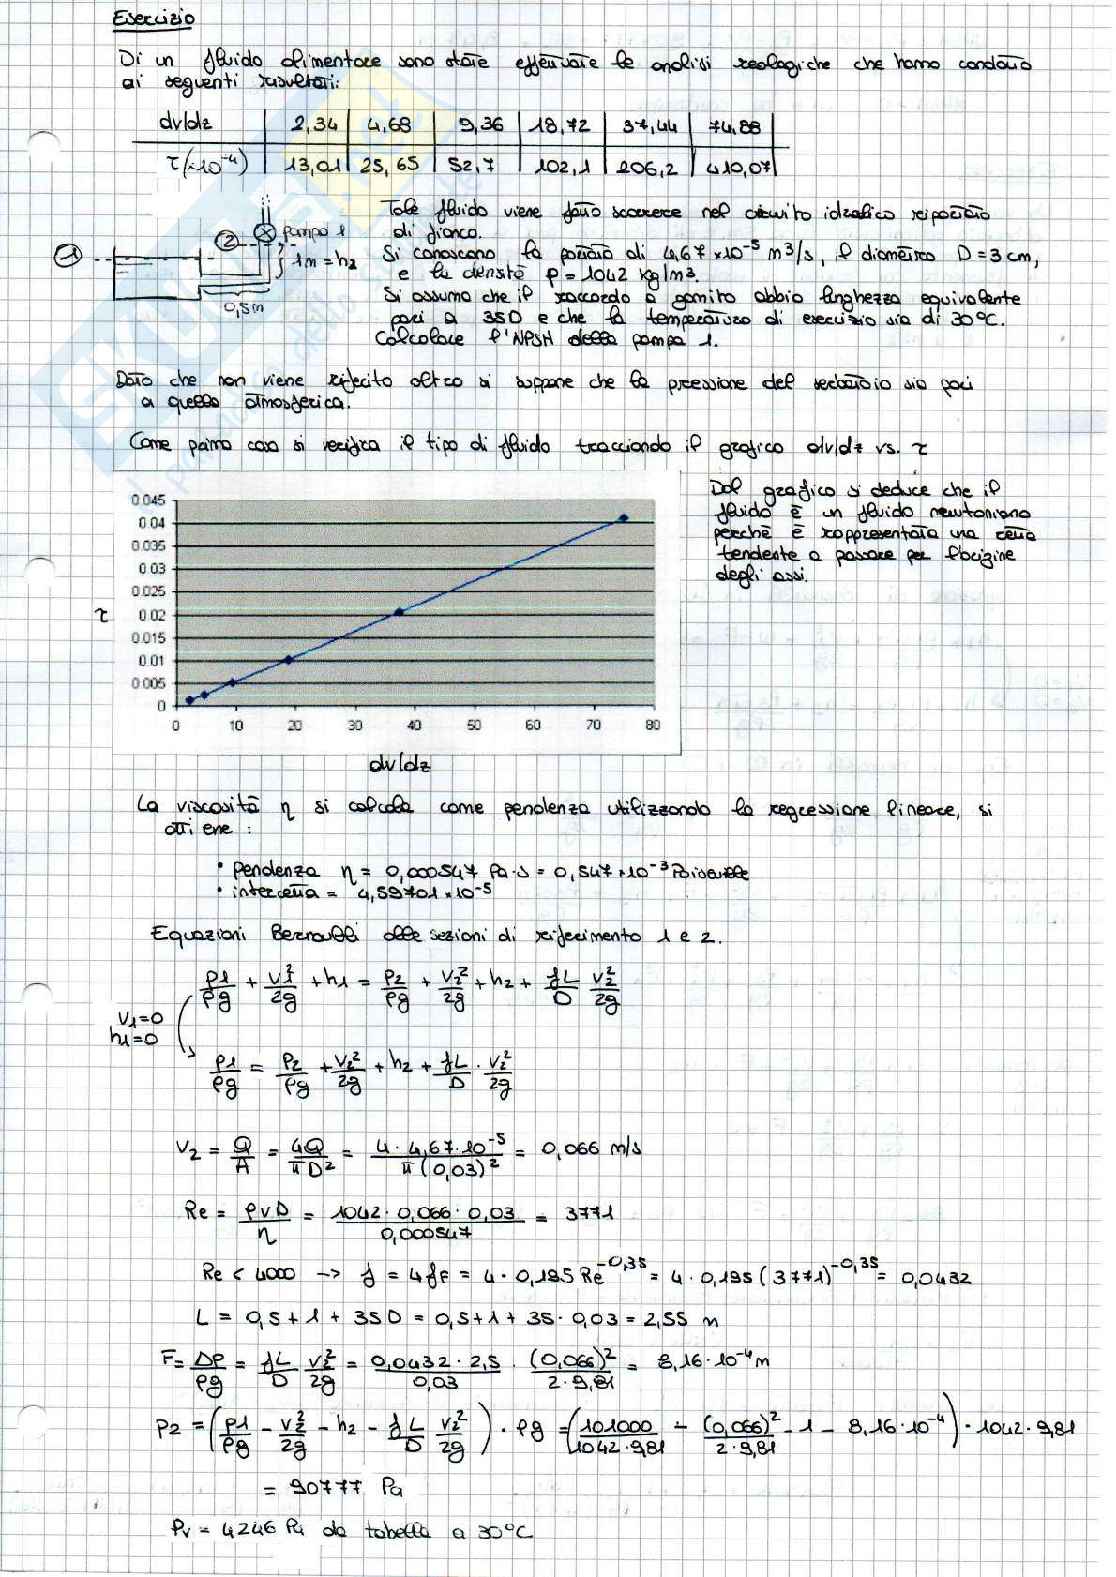 Esercizio
Di un fluido alimentare sono state effettuate le analisi reologiche che hanno condotto
ai seguenti risultati:
dv/dz 2,34 4,68 9,36 18,72 37,44 74,88
τ(×10⁻⁴) 13,01 25,65 52,7 102,1 206,2 410,07
Tale fluido viene fatto scorrere nel circuito idraulico riportato
di fianco.
Si conoscono la portata di 4,67×10⁻⁵ m³/s, il diametro D=3cm,
e la densità ρ=1042 kg/m³.
Si assuma che il raccordo a gomito abbia lunghezza equivalente
pari a 35D e che la temperatura di esercizio sia di 30°C.
Calcolare l'NPSH della pompa 1.
1
2
pompa 1
1m=h₂
0,5m
Dato che non viene riferito altro si suppone che la pressione del serbatoio sia pari
a quella atmosferica.
Come primo caso si verifica il tipo di fluido tracciando il grafico dv/dz vs. τ
0.045
0.04
0.035
0.03
0.025
0.02
0.015
0.01
0.005
0
τ
0 10 20 30 40 50 60 70 80
dv/dz
Dal grafico si deduce che il
fluido è un fluido newtoniano
perchè è rappresentata una retta
tendente a passare per l'origine
degli assi.
La viscosità η si calcola come pendenza utilizzando la regressione lineare, si
ottiene:
• pendenza η = 0,000547 Pa·s = 0,547×10⁻³ Poiseuille
• intercetta = 4,59701×10⁻⁵
Equazioni Bernoulli alle sezioni di riferimento 1 e 2.
p1/ρg + v₁²/2g + h1 = p2/ρg + v₂²/2g + h2 + fL/D v₂²/2g
v1=0
h1=0
p1/ρg = p2/ρg + v₂²/2g + h2 + fL/D · v₂²/2g
v2 = Q/A = 4Q/πD² = 4·4,67·10⁻⁵/π(0,03)² = 0,066 m/s
Re = ρvD/η = 1042·0,066·0,03/0,000547 = 3771
Re < 4000 → f = 4fF = 4·0,195 Re⁻⁰'³⁵ = 4·0,195(3771)⁻⁰'³⁵ = 0,0432
L = 0,5+1+35D = 0,5+1+35·0,03 = 2,55 m
F = Δp/ρg = fL/D v₂²/2g = 0,0432·2,5/0,03 · (0,066)²/2·9,81 = 8,16·10⁻⁴ m
p2 = (p1/ρg - v₂²/2g - h2 - f L/D v₂²/2g) · ρg = (101000/1042·9,81 - (0,066)²/2·9,81 - 1 - 8,16·10⁻⁴) · 1042·9,81
= 90777 Pa
Pv = 4246 Pa da tabella a 30°C